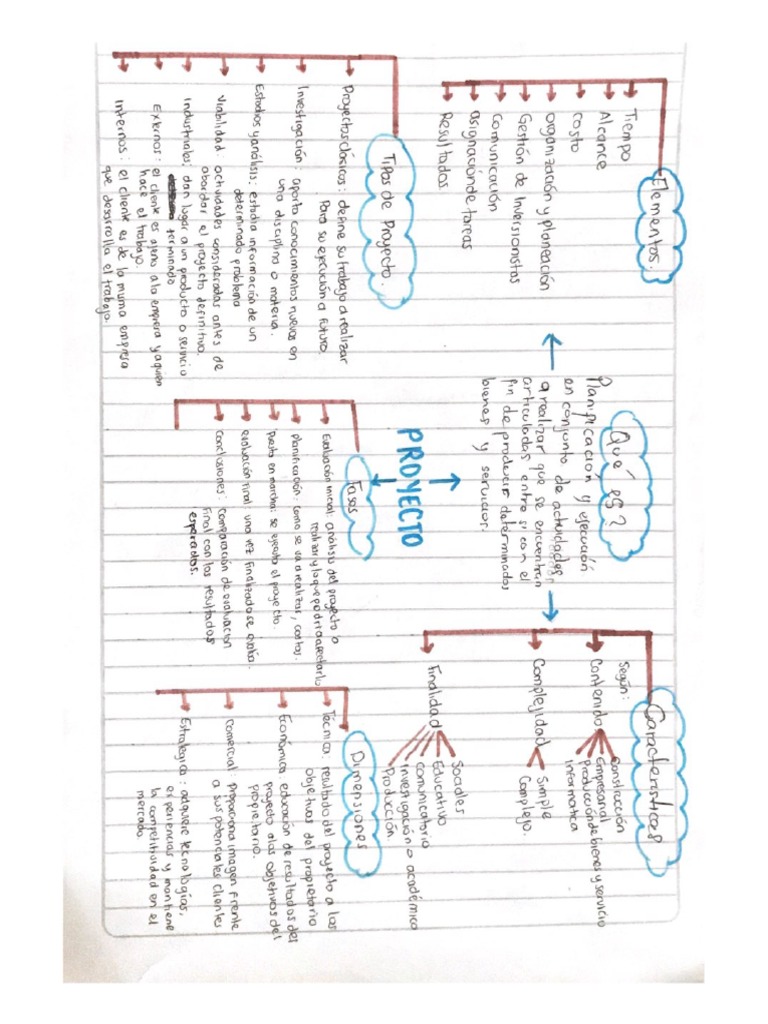 PROYECTO
Qué es?
Planificación y ejecución
en conjunto de actividades
a realizar que se encuentran
articuladas entre si con el
fin de producir determinados
bienes y servicios.
Elementos.
Tiempo
Alcance
Costo
organización y planeación
Gestión de inversionistas
Comunicación
asignación de tareas
Resultados.
Características
Según:
Contenido
Construcción
Empresarial
Producción de bienes y servicio
informatica
Complejidad
Simple
Complejo.
Finalidad
Sociales
Educativo
comunicatorio
investigación o académica
Producción.
Tipos de Proyecto.
Proyectos clásicos: define su trabajo a realizar
Para su ejecución a futuro.
Investigación: aporta conocimientos nuevos en
una disciplina o materia.
Estudios y análisis: estudia información de un
determinado problema
Viabilidad: actividades consideradas antes de
abordar el proyecto definitivo.
Industriales: dan lugar a un producto o servicio
terminado
Externos: el cliente es ajeno a la empresa y a quien
hace el trabajo.
Internos: el cliente es de la misma empresa
que desarrolla el trabajo.
Fases
Evaluación inicial: análisis del proyecto a
realizar y lo que podria afectarlo
planificación: como se va a realizar, costos.
puesta en marcha: se ejecuta el proyecto.
evaluación final: una vez finalizado se evalúa.
conclusiones: comparación de evaluacion
final con los resultados
esperados.
Dimensiones
Técnica: resultado del proyecto a los
objetivos del propietario
Económica: educación de resultados del
proyecto a los objetivos del
propietario.
comercial: proporciona imagen frente
a sus potenciales clientes
Estrategica: adquiere tecnologías,
experiencias y mantiene
la competitividad en el
mercado.